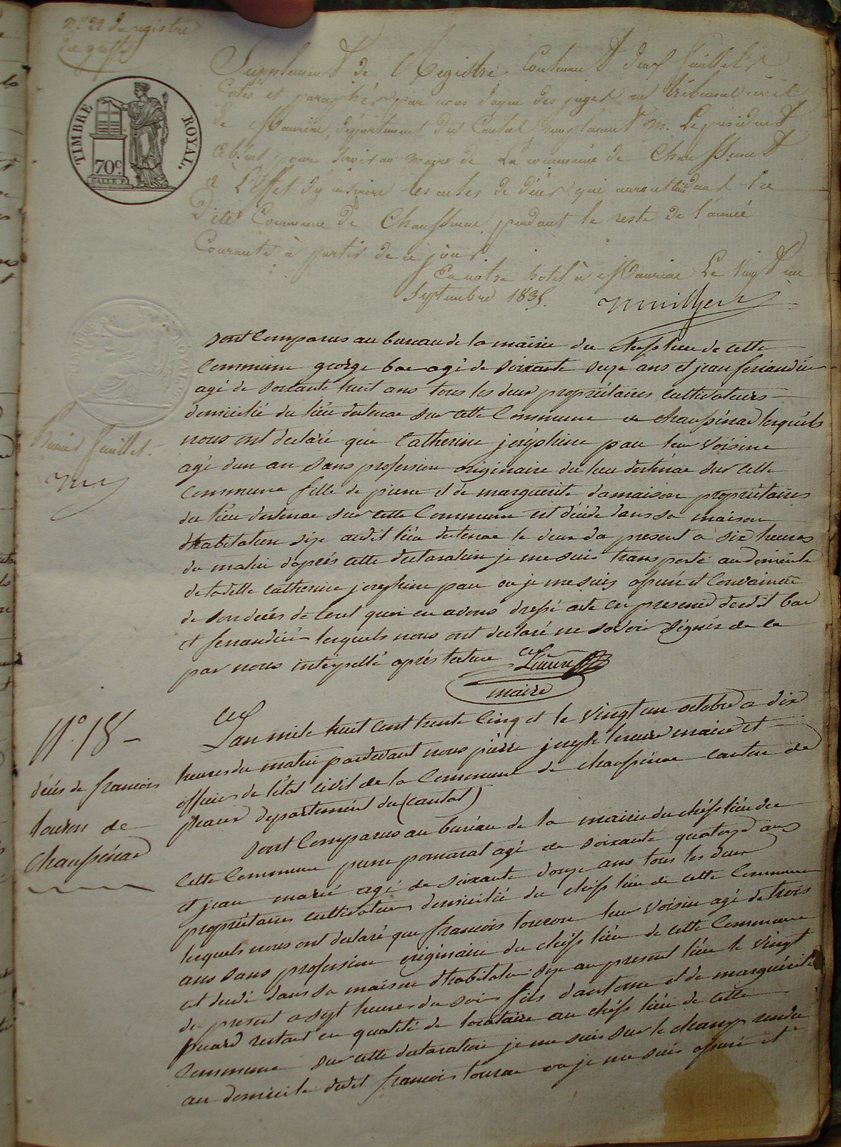 n° 22 du registre
du greffe
TIMBRE ROYAL.
70c
Supplement de Registre Contenant deux feuillets
Cotés et paraphés par nous doyen des juges au tribunal civil
de Mauriac, département du Cantal remplacant M. Le président
absent pour servir au maire de La commune de Chaussenac
à L'effet d'y inscrire les actes de décès qui auront lieu dans la
dite Commune de Chaussenac pendant le reste de l'année
Courante à partir de ce jour
En notre hotel à Mauriac Le vingt un
Septembre 1835.
sont Comparus au bureau de la mairie du cheflieu de cette
Commune george bac agé de soixante seize ans et jean
agé de soixante huit ans tous les deux propriétaires cultivateurs
domicilié du lieu d'estenac sur cette Commune de chaussenac lesquels
nous ont declaré que Catherine joséphine pau leur voisine
agé d'un an sans profession originaire du lieu d'estenac sur cette
Commune fille de pierre et de marguerite damaison propriétaires
du lieu d'estenac sur cette Commune est décédé dans sa maison
d'habitation size audit lieu d'estenac le deux du present a six heures
du matin d'après cette déclaration je me suis transporté au domicile
de ladite catherine josephine pau ou je me suis assuré et Convaincu
de son décès de tout quoi en avons dressé acte en presence desdit bac
et lesquels nous ont declaré ne savoir signer de ce
par nous interpellé après lecture
maire
premier feuillet.
N°. 18 –
décès de francois
touron de
Chaussenac
L'an mile huit cent trente Cinq et le vingt un octobre a dix
heures du matin pardevant nous pierre joseph maire et
officier de l'état civil de la Commune de chaussenac canton de
pleaux departement du (cantal)
sont Comparus au bureau de la mairie du cheflieu de
Cette Commune pierre pomarat agé de soixante quatorze ans
et jean marié agé de soixante douze ans tous les deux
propriétaires cultivateurs domicilié du cheflieu de cette Commune
lesquels nous ont declaré que francois touron leur voisin agé de trois
ans sans profession originaire du cheflieu de cette Commune
est décédé dans sa maison d'habitation size au present lieu le vingt
du present a sept heures du soir fils d'antoine et de marguerite
restant en qualité de locataire au cheflieu de cette
Commune sur cette declaration je me suis sur le champ rendu
au domicile dudit francois touron ou je me suis assuré et